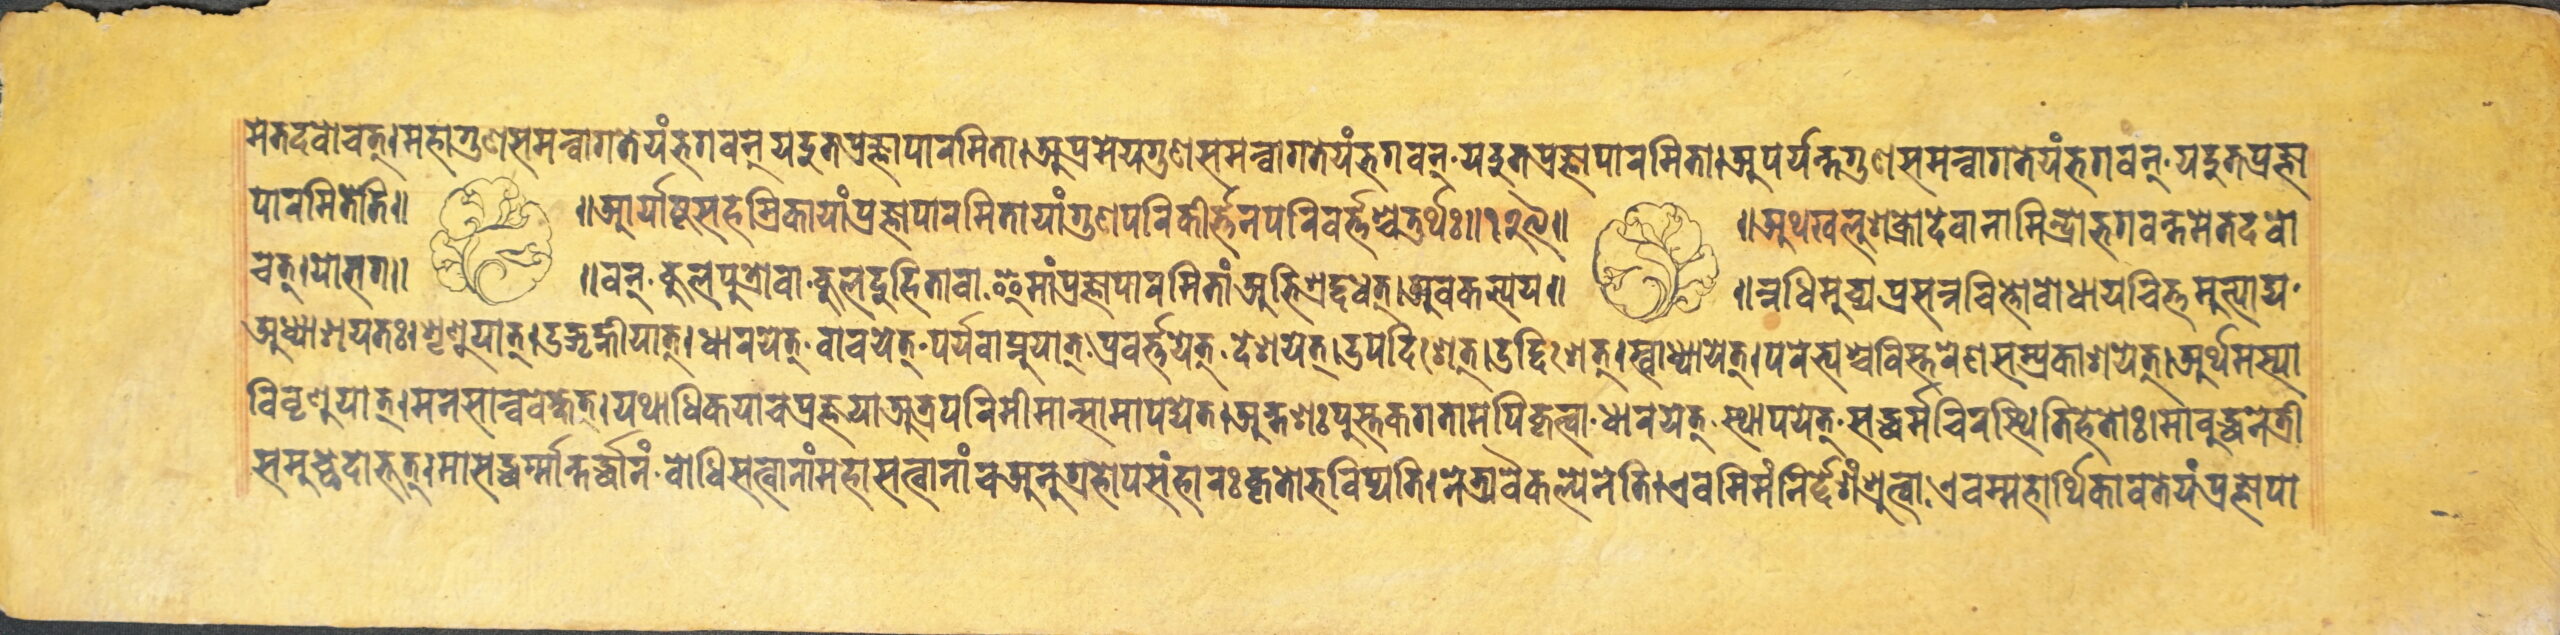 मेतदवोचत्।महागुणसमन्वागतेयंभगवन्यदुतप्रज्ञापारमिता।अप्रमेयगुणसमन्वागतेयंभगवन्·यदुतप्रज्ञापारमिता।अपर्यन्तगुणसमन्वागतेयंभगवन्·यदुतप्रज्ञा
पारमितेति॥ ॥आर्याष्टसहस्रिकायांप्रज्ञापारमितायांगुणपरिकीर्त्तनपरिवर्त्तश्चतुर्थः॥ ॥ ॥अथखलुशक्रोदेवानामिन्द्रोभगवन्तमेतदवो
चत्।योभग॥ ॥वन्·कुलपुत्रोवा·कुलदुहितावा·इमांप्रज्ञापारमितांअभिश्रद्दधत्।अवकल्पय॥ ॥न्नधिमुच्यप्रसन्नचित्तोबोधायचित्तमुत्पाद्य·
अध्याशयतः।शृणुयात्।उद्गृह्णीयात्।धारयेत्·वाचयेत्·पर्यवाप्नुयात्·प्रवर्त्तयेत्·देशयेत्।उपदिशेत्।उद्दिशेत्।स्वाध्यायेत्।परेभ्यश्चविस्तरेणसम्प्रकाशयेत्।अर्थमस्या
विवृणुयात्।मनसान्ववेक्षेत्।यथाधिकयाचप्रज्ञयाअत्रपरिमीमान्सामापद्येत।अन्तशःपुस्तकगतामपिकृत्वा·धारयेत्·स्थापयेत्·सद्धर्मचिरस्थितिहेतोः।माबुद्धनेत्री
समुच्छेदोभूत्।मासद्धर्म्मान्तर्द्धानं·बोधिसत्वानांमहासत्वानांचअनुग्रहोपसंहारःकृतोभविष्यति।नेत्र्यवैकल्येनेति।एवमिमंनिर्द्देशंश्रुत्वा·एवम्महार्थिकावतेयंप्रज्ञापा